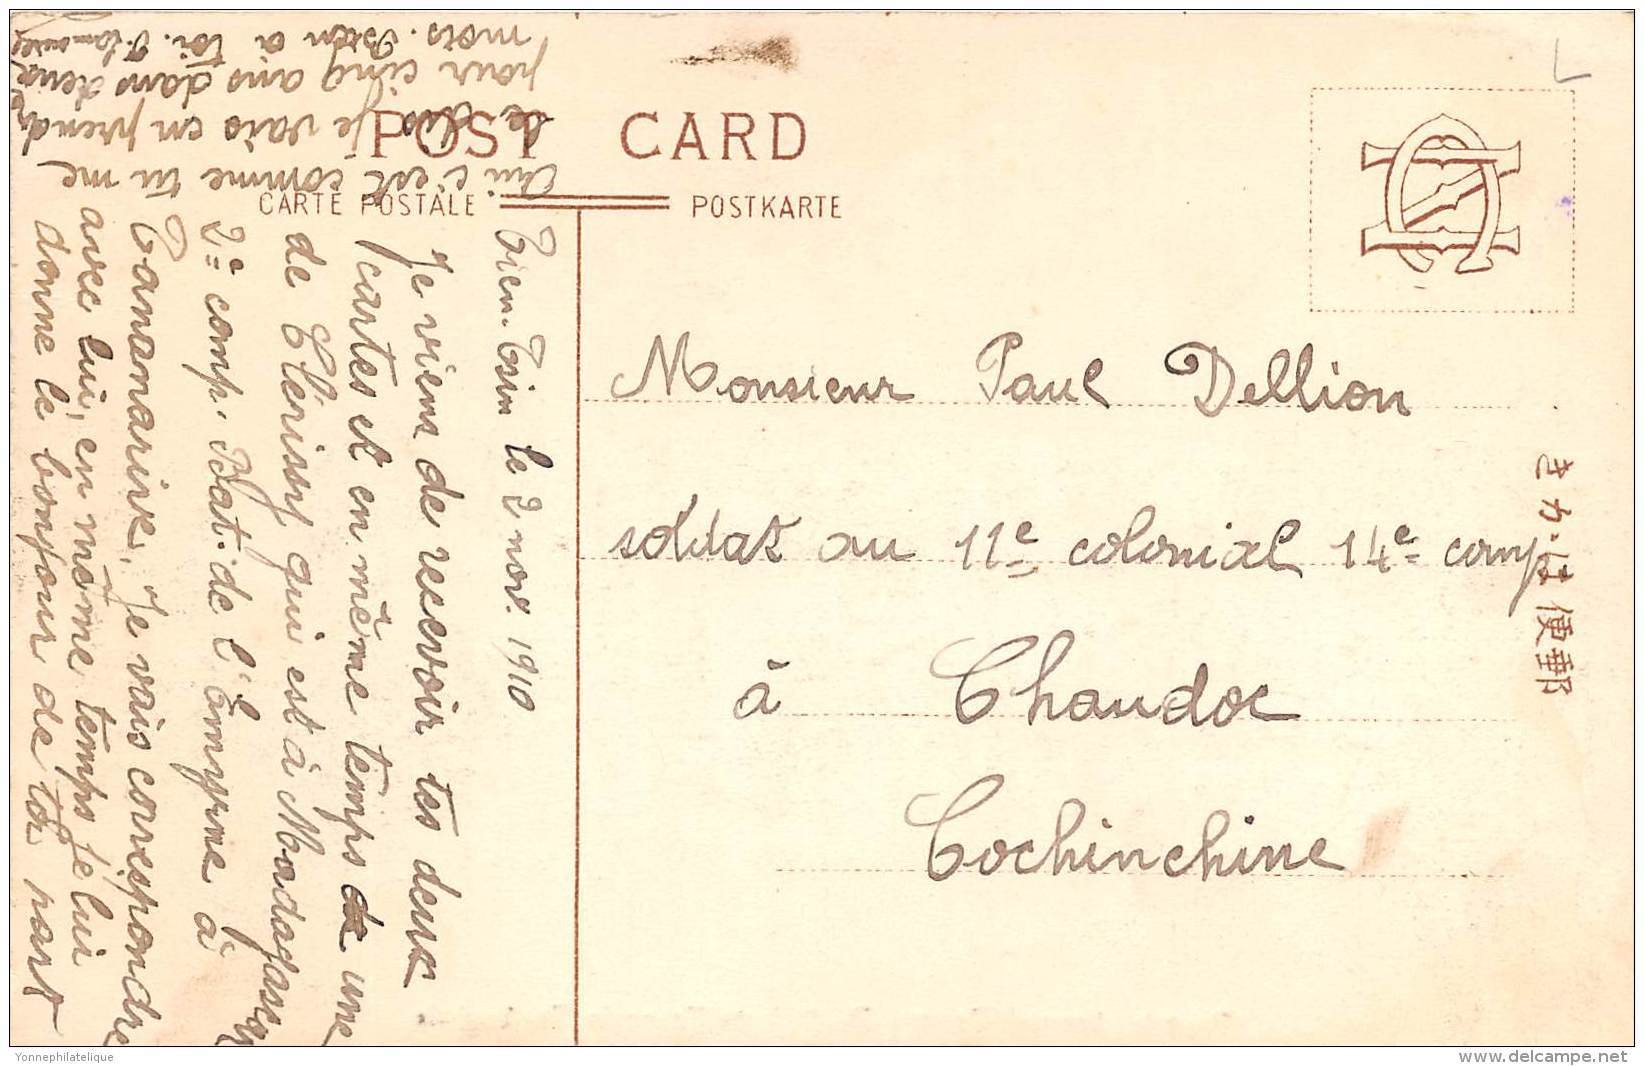 POST CARD
CARTE POSTALE
POSTKARTE
Tien-Tsin le 2 nov. 1910
Je viens de recevoir tes deux
cartes et en même temps une
de Clérissy qui est à Madagascar
2e comp. Bat. de l'Emyrne à
Tananarive, Je vais correspondre
avec lui, en même temps je lui
donne le bonjour de toi part
Oui c'est comme tu me
le dis Je vais en prendre
pour cinq ans dans deux
mois. Bien à toi.
Monsieur Paul Dellion
soldat au 11e colonial 14e comp
à Chaudoc
Cochinchine
郵便はかき
Yonnephilatelique
delcampe.net